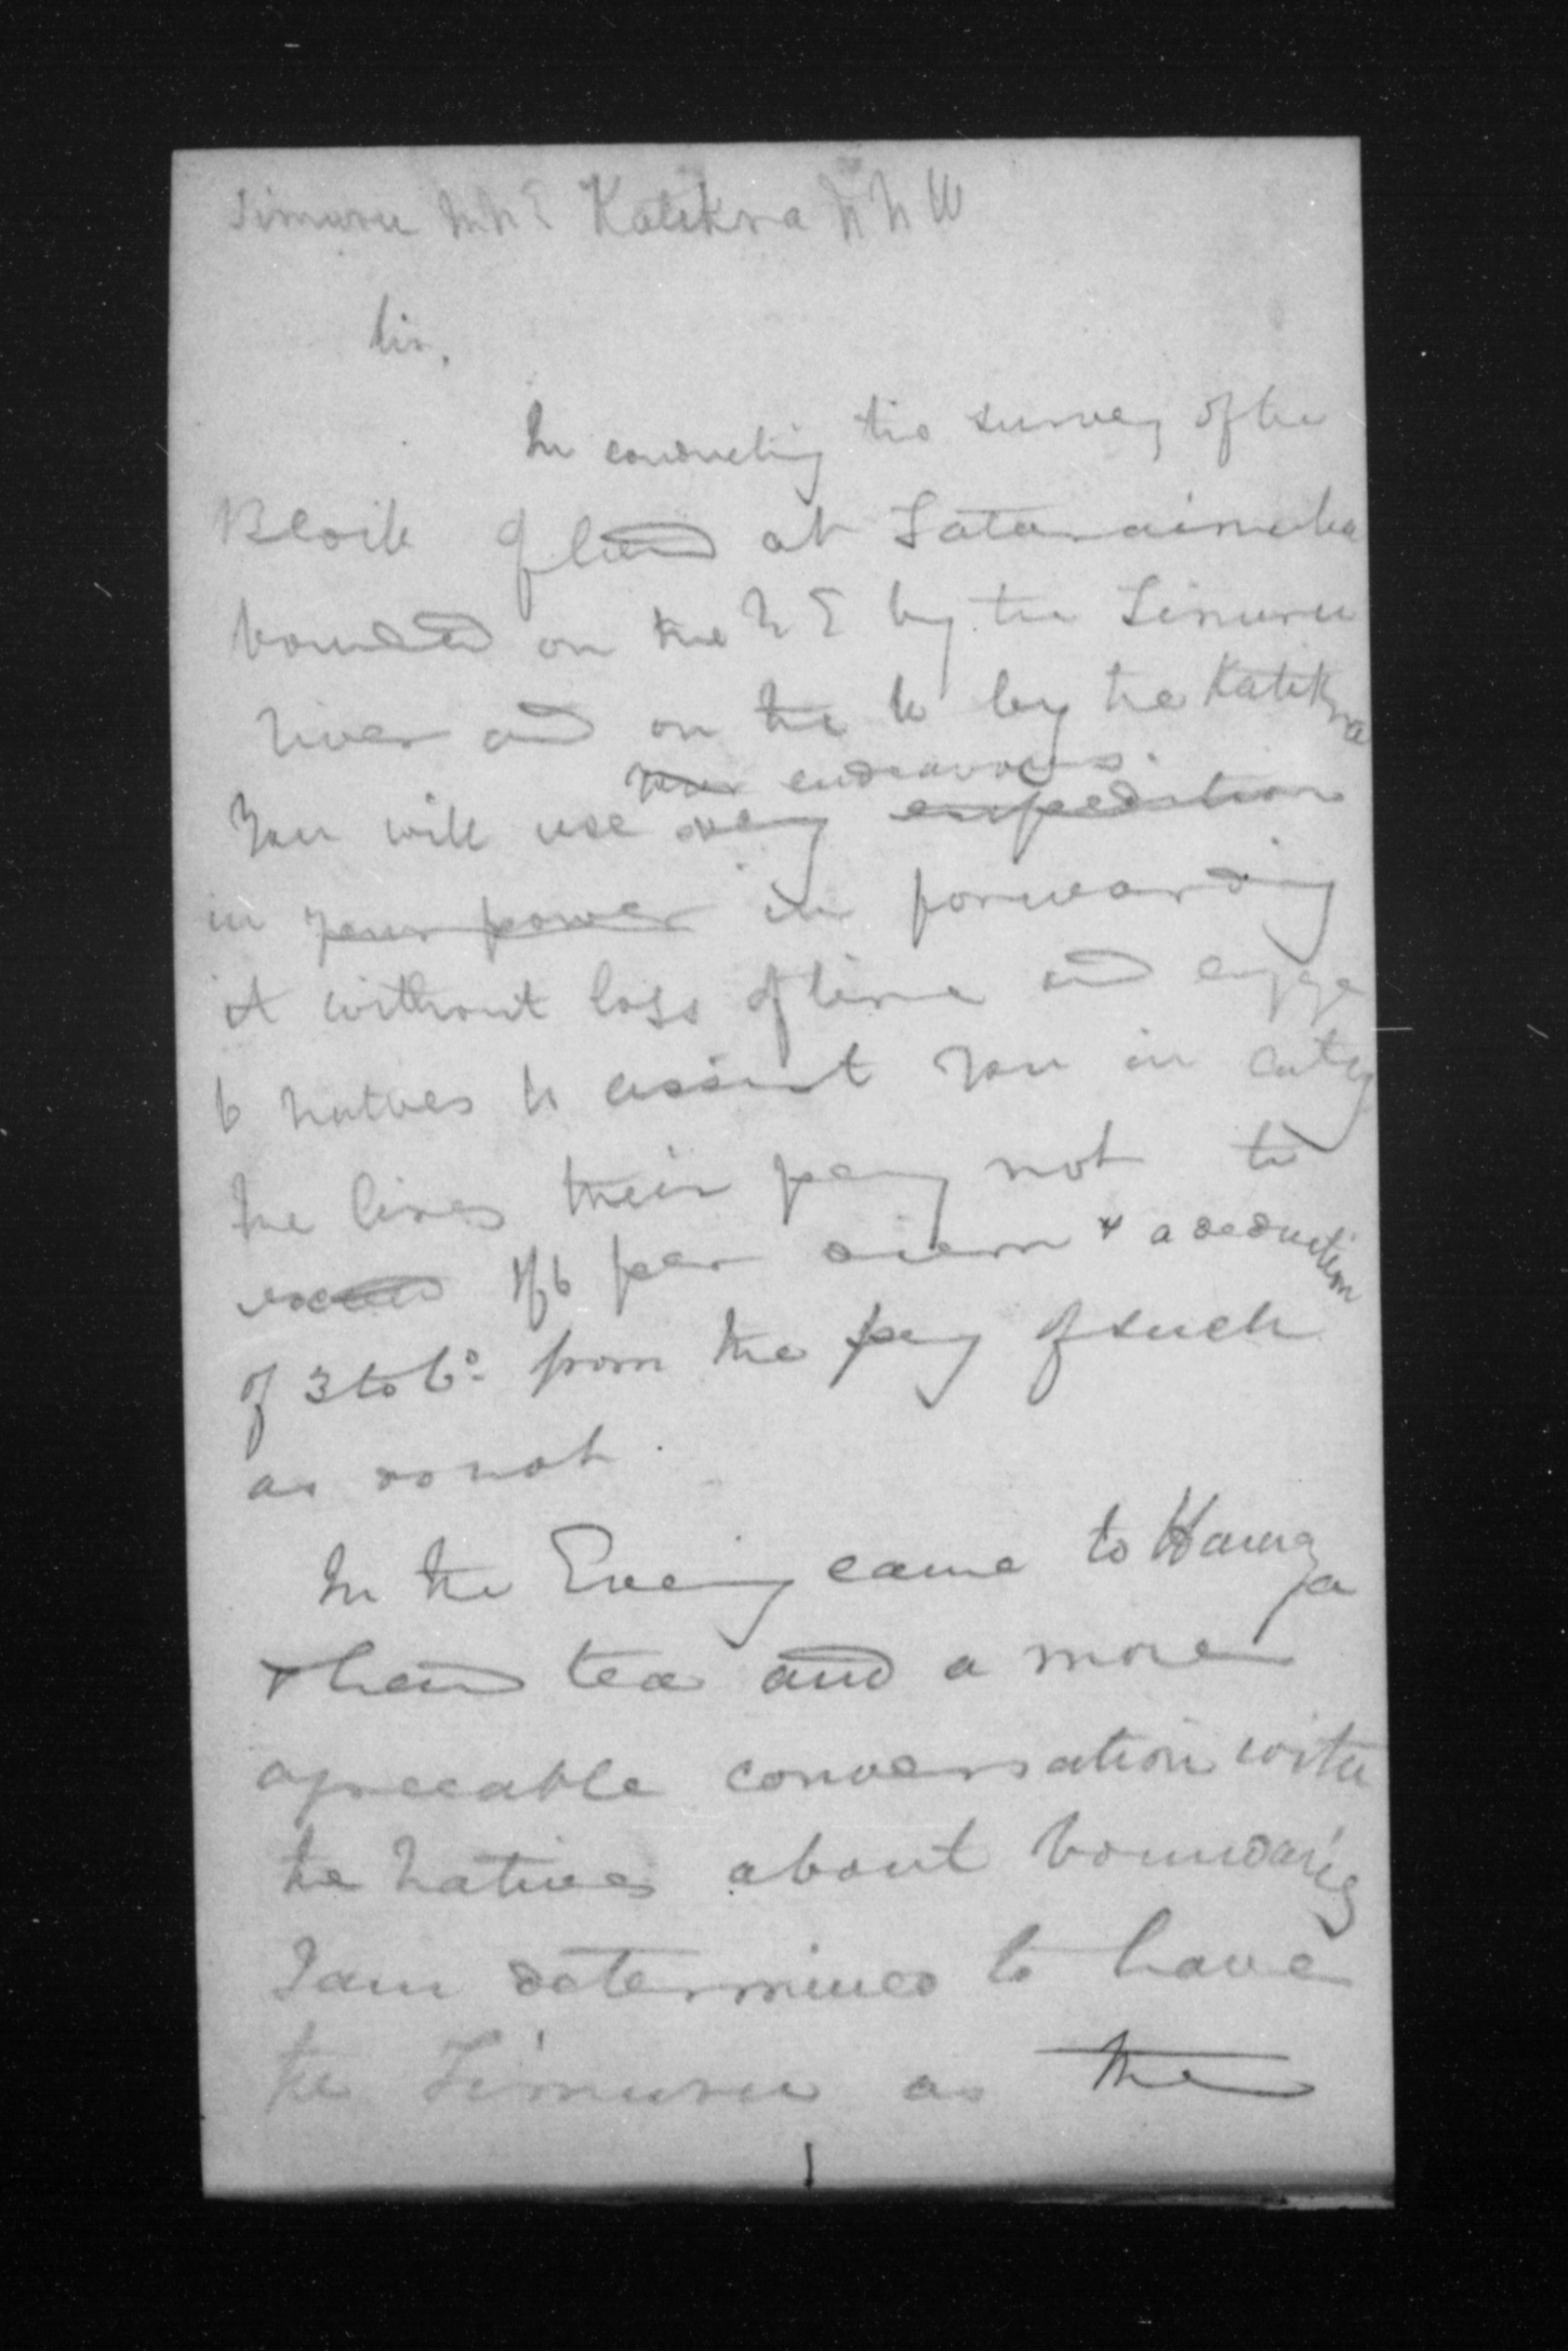 Timuru NNE Katikra NNW
Sir,
In conducting the survey of the
Block of land at Tataraimaka
bounded on the NE by the Timuru
river and on the W by the Katikra
your endeavours
You will use every expedition
in your power in forwarding
it without loss of time and engage
6 natives to assist you in cutg
the lines their pay not to
exceed 1/6 per diem & a deduction
of 3 to 6d from the pay of such
as do not.
In the Evening came to Hauga
& had tea and a more
agreeable conversation with
the natives about boundaries
I am determined to have
the Timuru as the